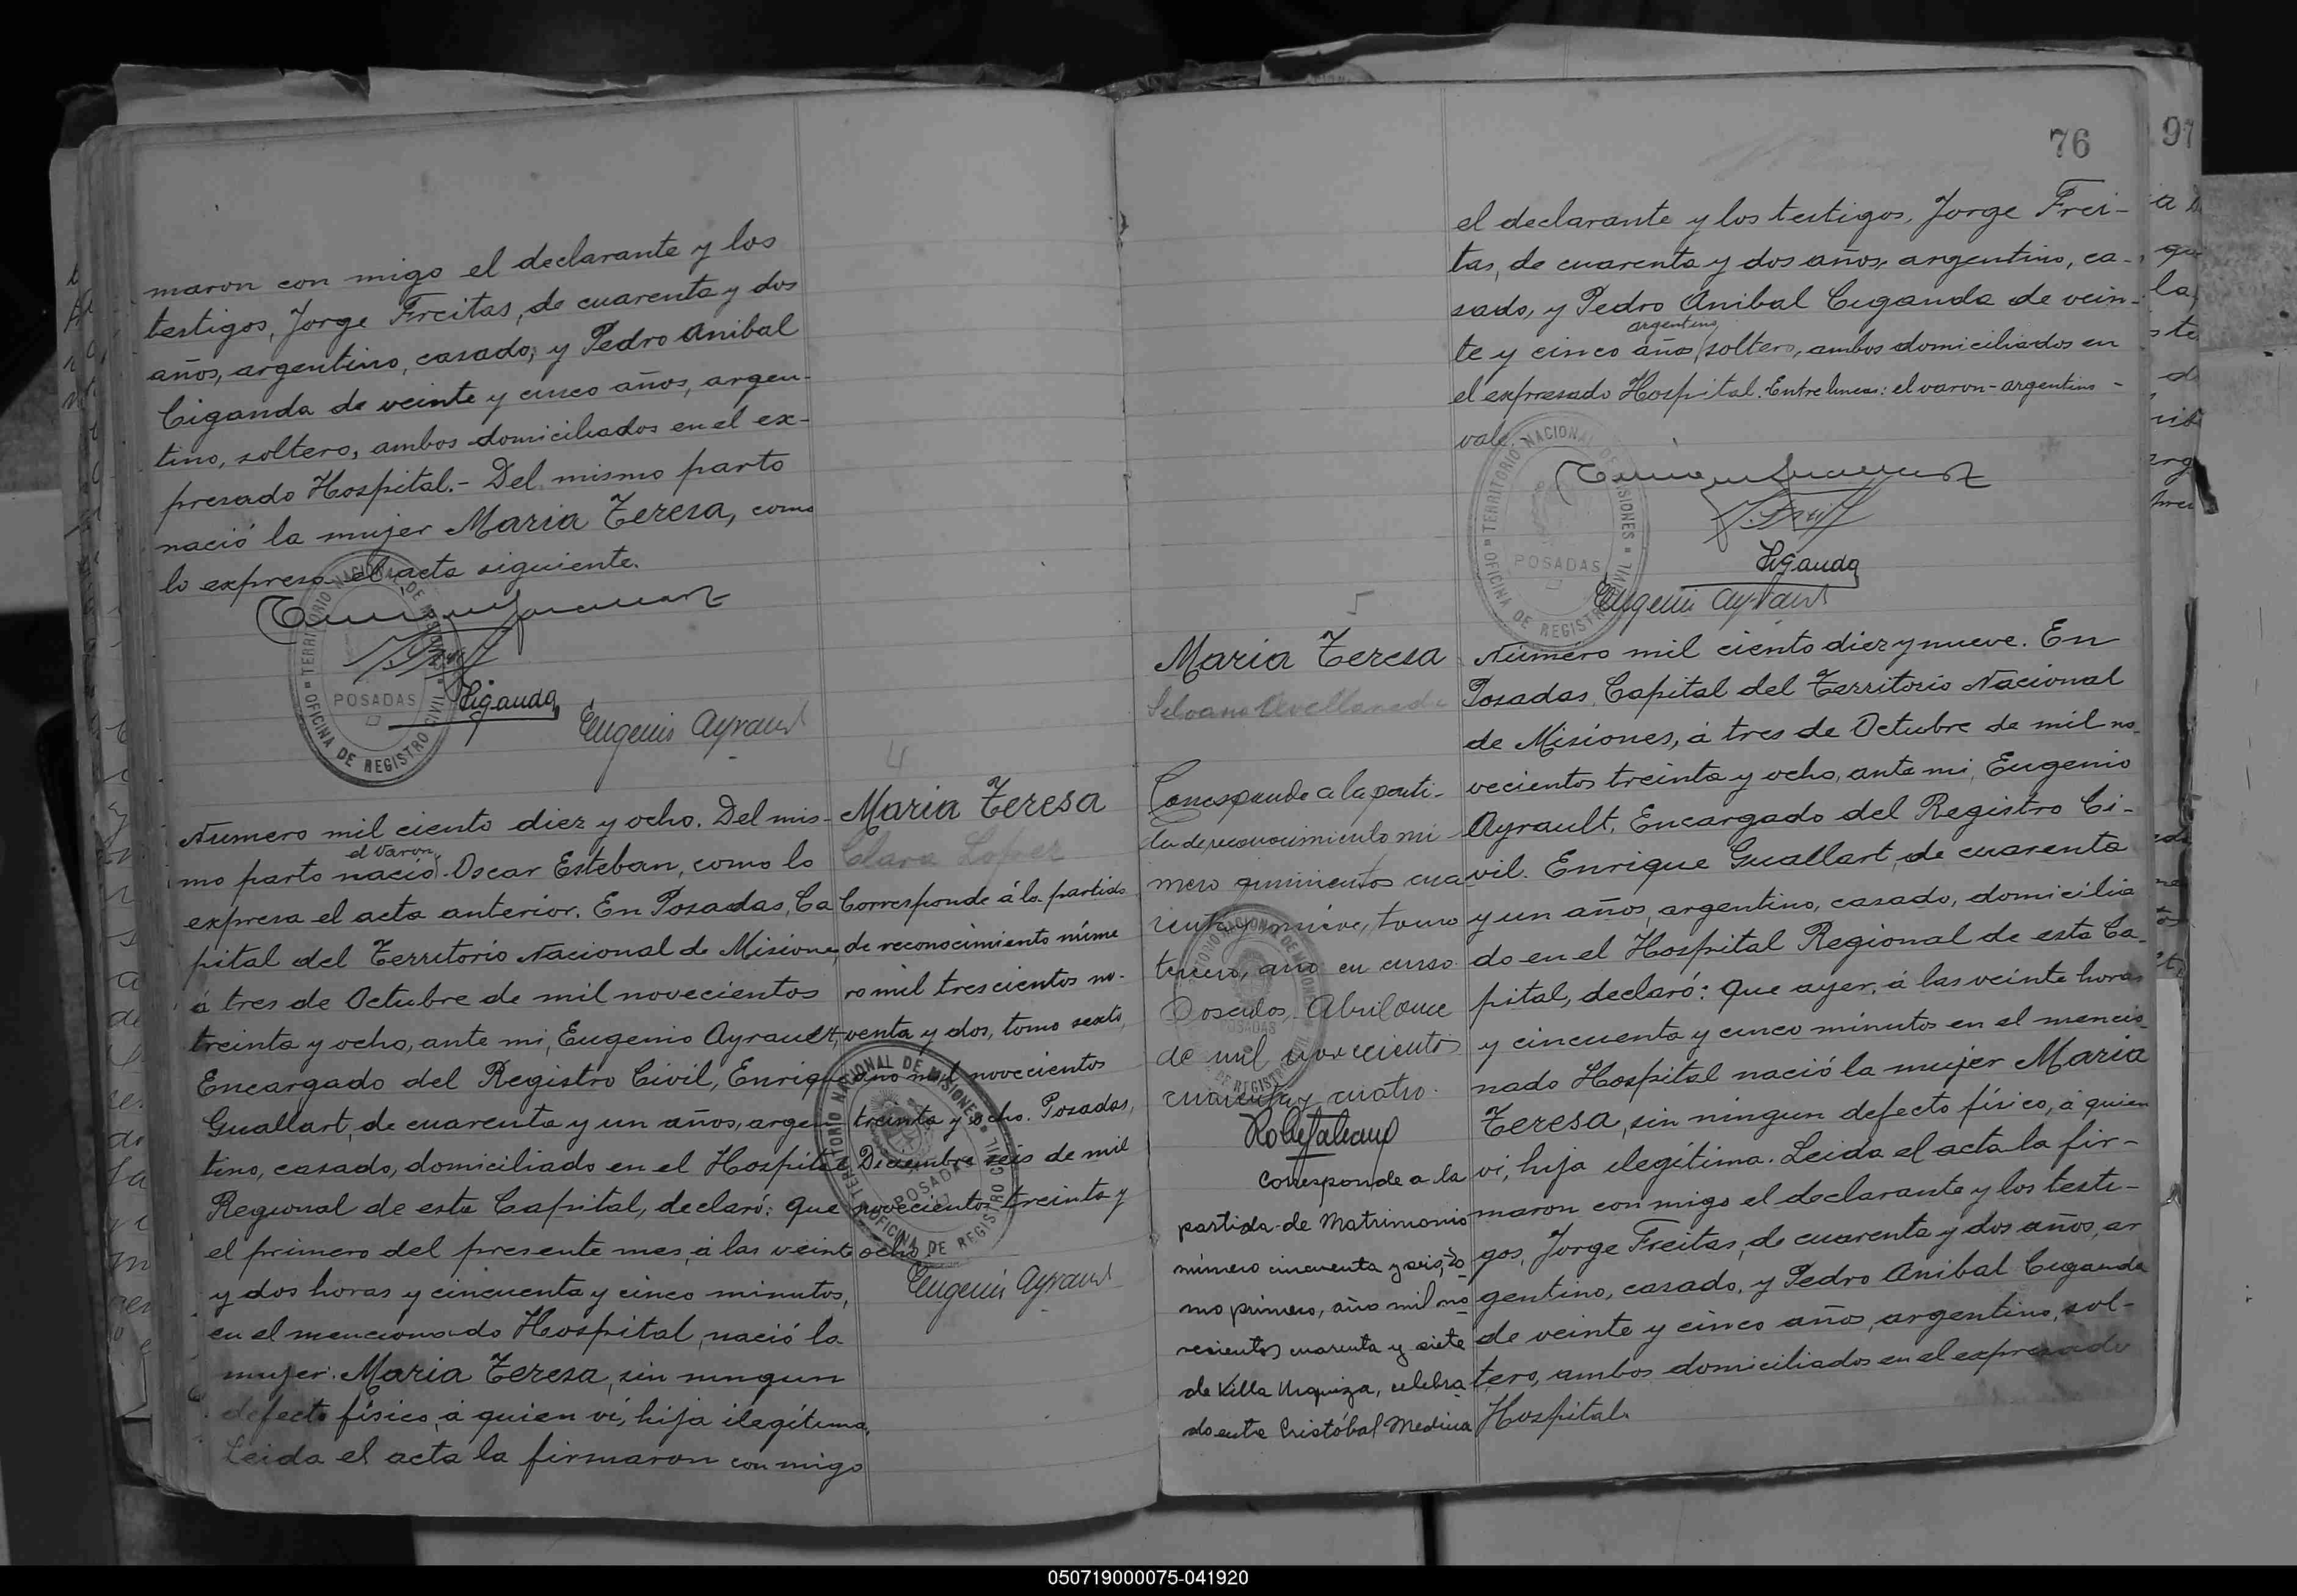 maron con migo el declarante y los
testigos, Jorge Freitas, de cuarenta y dos
años, argentino, casado, y Pedro Anibal
Ciganda de veinte y cinco años, argen-
tino, soltero, ambos domiciliados en el ex-
presado Hospital.- Del mismo parto
nació la mujer Maria Teresa, como
lo expresa el acta siguiente.
TERRITORIO NACIONAL DE MISIONES
POSADAS
OFICINA DE REGISTRO CIVIL
Ciganda
Eugenio Ayrault
Numero mil ciento diez y ocho. Del mis-
el varon,
mo parto nació Oscar Esteban, como lo
expresa el acta anterior. En Posadas, Ca
pital del Territorio Nacional de Misiones,
á tres de Octubre de mil novecientos
treinta y ocho, ante mi, Eugenio Ayrault,
Encargado del Registro Civil, Enrique
Guallart, de cuarenta y un años, argen
tino, casado, domiciliado en el Hospital
Regional de esta Capital, declaró: Que
el primero del presente mes, á las veinte
y dos horas y cincuenta y cinco minutos,
en el mencionado Hospital, nació la
mujer: Maria Teresa, sin ningun
defecto físico, á quien ví, hija ilegítima.
Leida el acta la firmaron con migo
4
Maria Teresa
Clara Lopez
Corresponde á la partida
de reconocimiento núme
ro mil trescientos no-
venta y dos, tomo sexto,
año mil novecientos
treinta y ocho. Posadas,
Diciembre seis de mil
novecientos treinta y
ocho.
TERRITORIO NACIONAL DE MISIONES
POSADAS
OFICINA DE REGISTRO CIVIL
Eugenio Ayrault
76
97
el declarante y los testigos, Jorge Frei-
tas, de cuarenta y dos años, argentino, ca-
sado, y Pedro Anibal Ciganda de vein-
argentino,
te y cinco años soltero, ambos domiciliados en
el expresado Hospital. Entre lineas: el varon-argentino-
vale.
TERRITORIO NACIONAL DE MISIONES
POSADAS
OFICINA DE REGISTRO CIVIL
Ciganda
Eugenio Ayrault
5
Maria Teresa
Silvano Avellaneda
Corresponde a la parti-
da de reconocimiento nú-
mero quinientos cua
renta y nueve, tomo
tercero, año en curso.
Posadas, Abril once
de mil novecientos
cuarenta y cuatro.
POSADAS
Corresponde a la
partida de Matrimonio
número cincuenta y seis, to
mo primero, año mil no
vecientos cuarenta y siete
de Villa Urquiza, celebra
do entre Cristóbal Medina
Número mil ciento diez y nueve. En
Posadas, Capital del Territorio Nacional
de Misiones, á tres de Octubre de mil no-
vecientos treinta y ocho, ante mi, Eugenio
Ayrault, Encargado del Registro Ci-
vil. Enrique Guallart, de cuarenta
y un años, argentino, casado, domicilia
do en el Hospital Regional de esta Ca-
pital, declaró: Que ayer, á las veinte horas
y cincuenta y cinco minutos en el mencio-
nado Hospital nació la mujer Maria
Teresa, sin ningun defecto físico, á quien
ví, hija ilegítima. Leida el acta la fir-
maron con migo el declarante y los testi-
gos, Jorge Freitas, de cuarenta y dos años, ar
gentino, casado, y Pedro Anibal Ciganda
de veinte y cinco años, argentino, sol-
tero, ambos domiciliados en el expresado
Hospital.
050719000075-041920